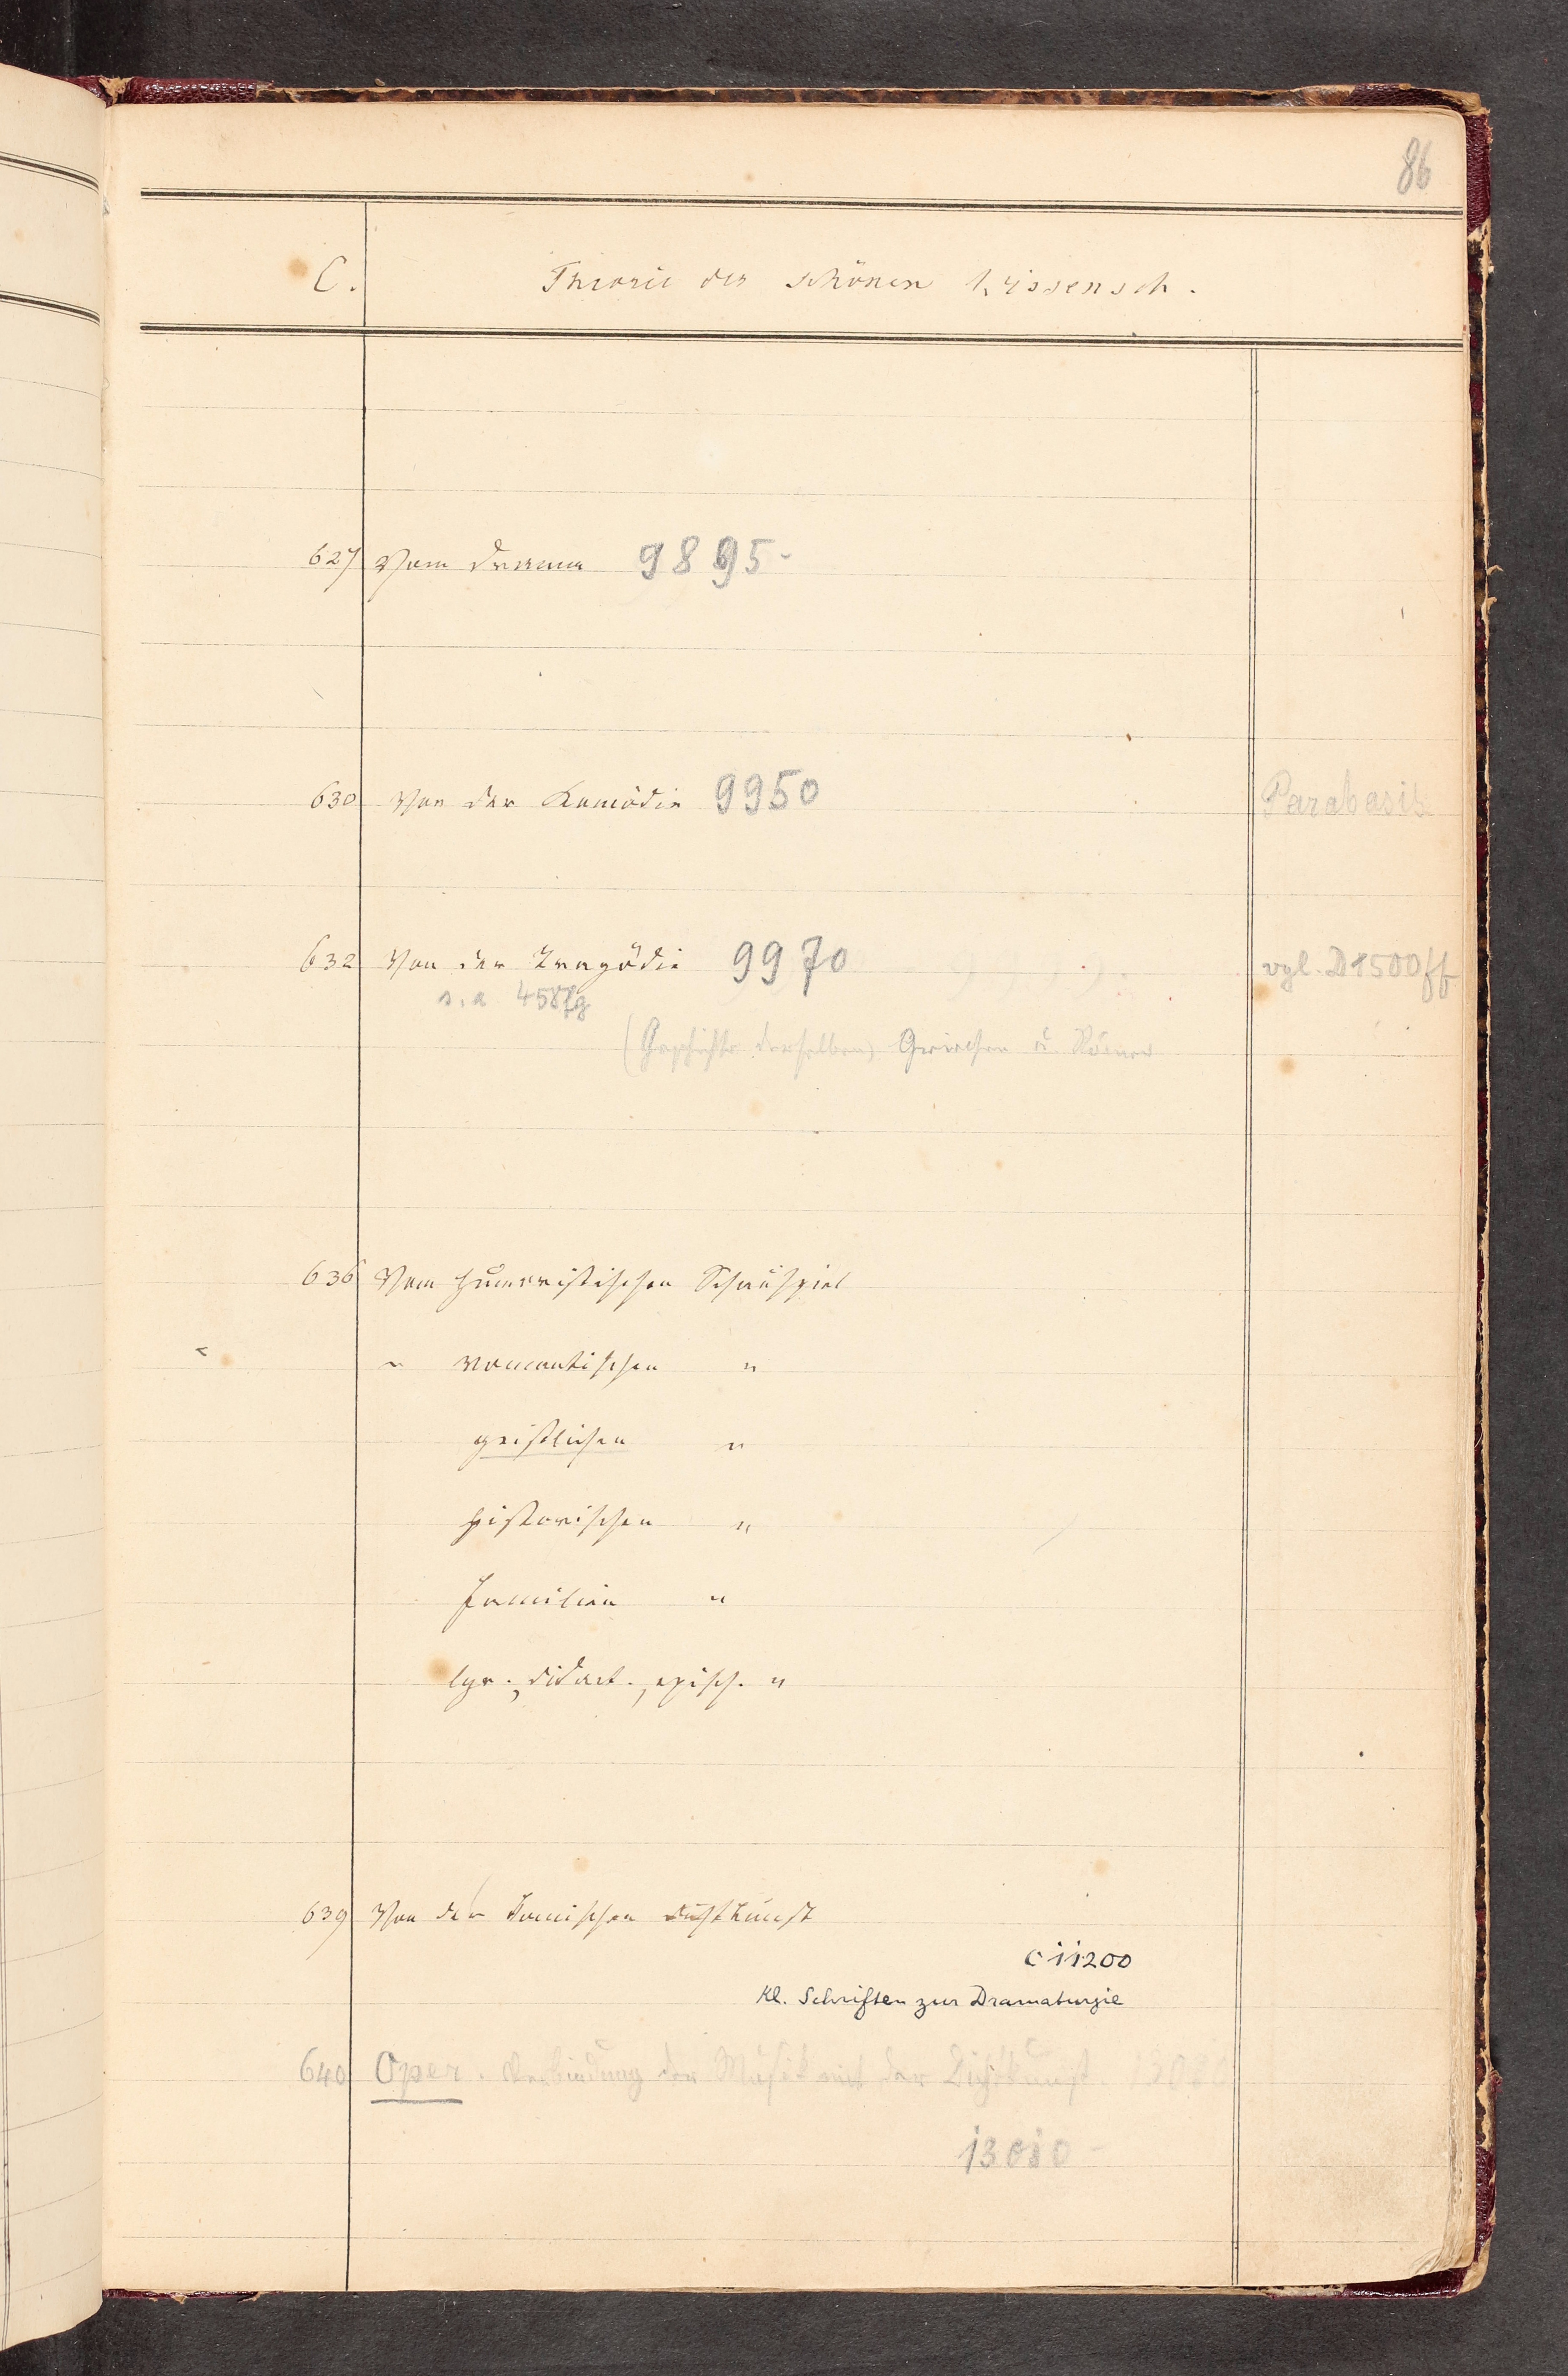 86
C. Theorie der schönen Wissensch.
627 Vom Drama 9895-
630 Von der Komödie 9950 Parabasis
632 Von der Tragödie 9970 vgl. D1500ff
s. a 458fg
(Geschichte derselben) Griechen u. Römer
636 Vom humoristischen Schauspiel
" romantischen "
geistlichen "
historischen "
Familien "
lyr., didact., episch. "
639 Von der komischen
C 11200
Kl. Schriften zur Dramaturgie
640 Oper. Verbindung der Musik mit der Dichtkunst. 13010
13010-